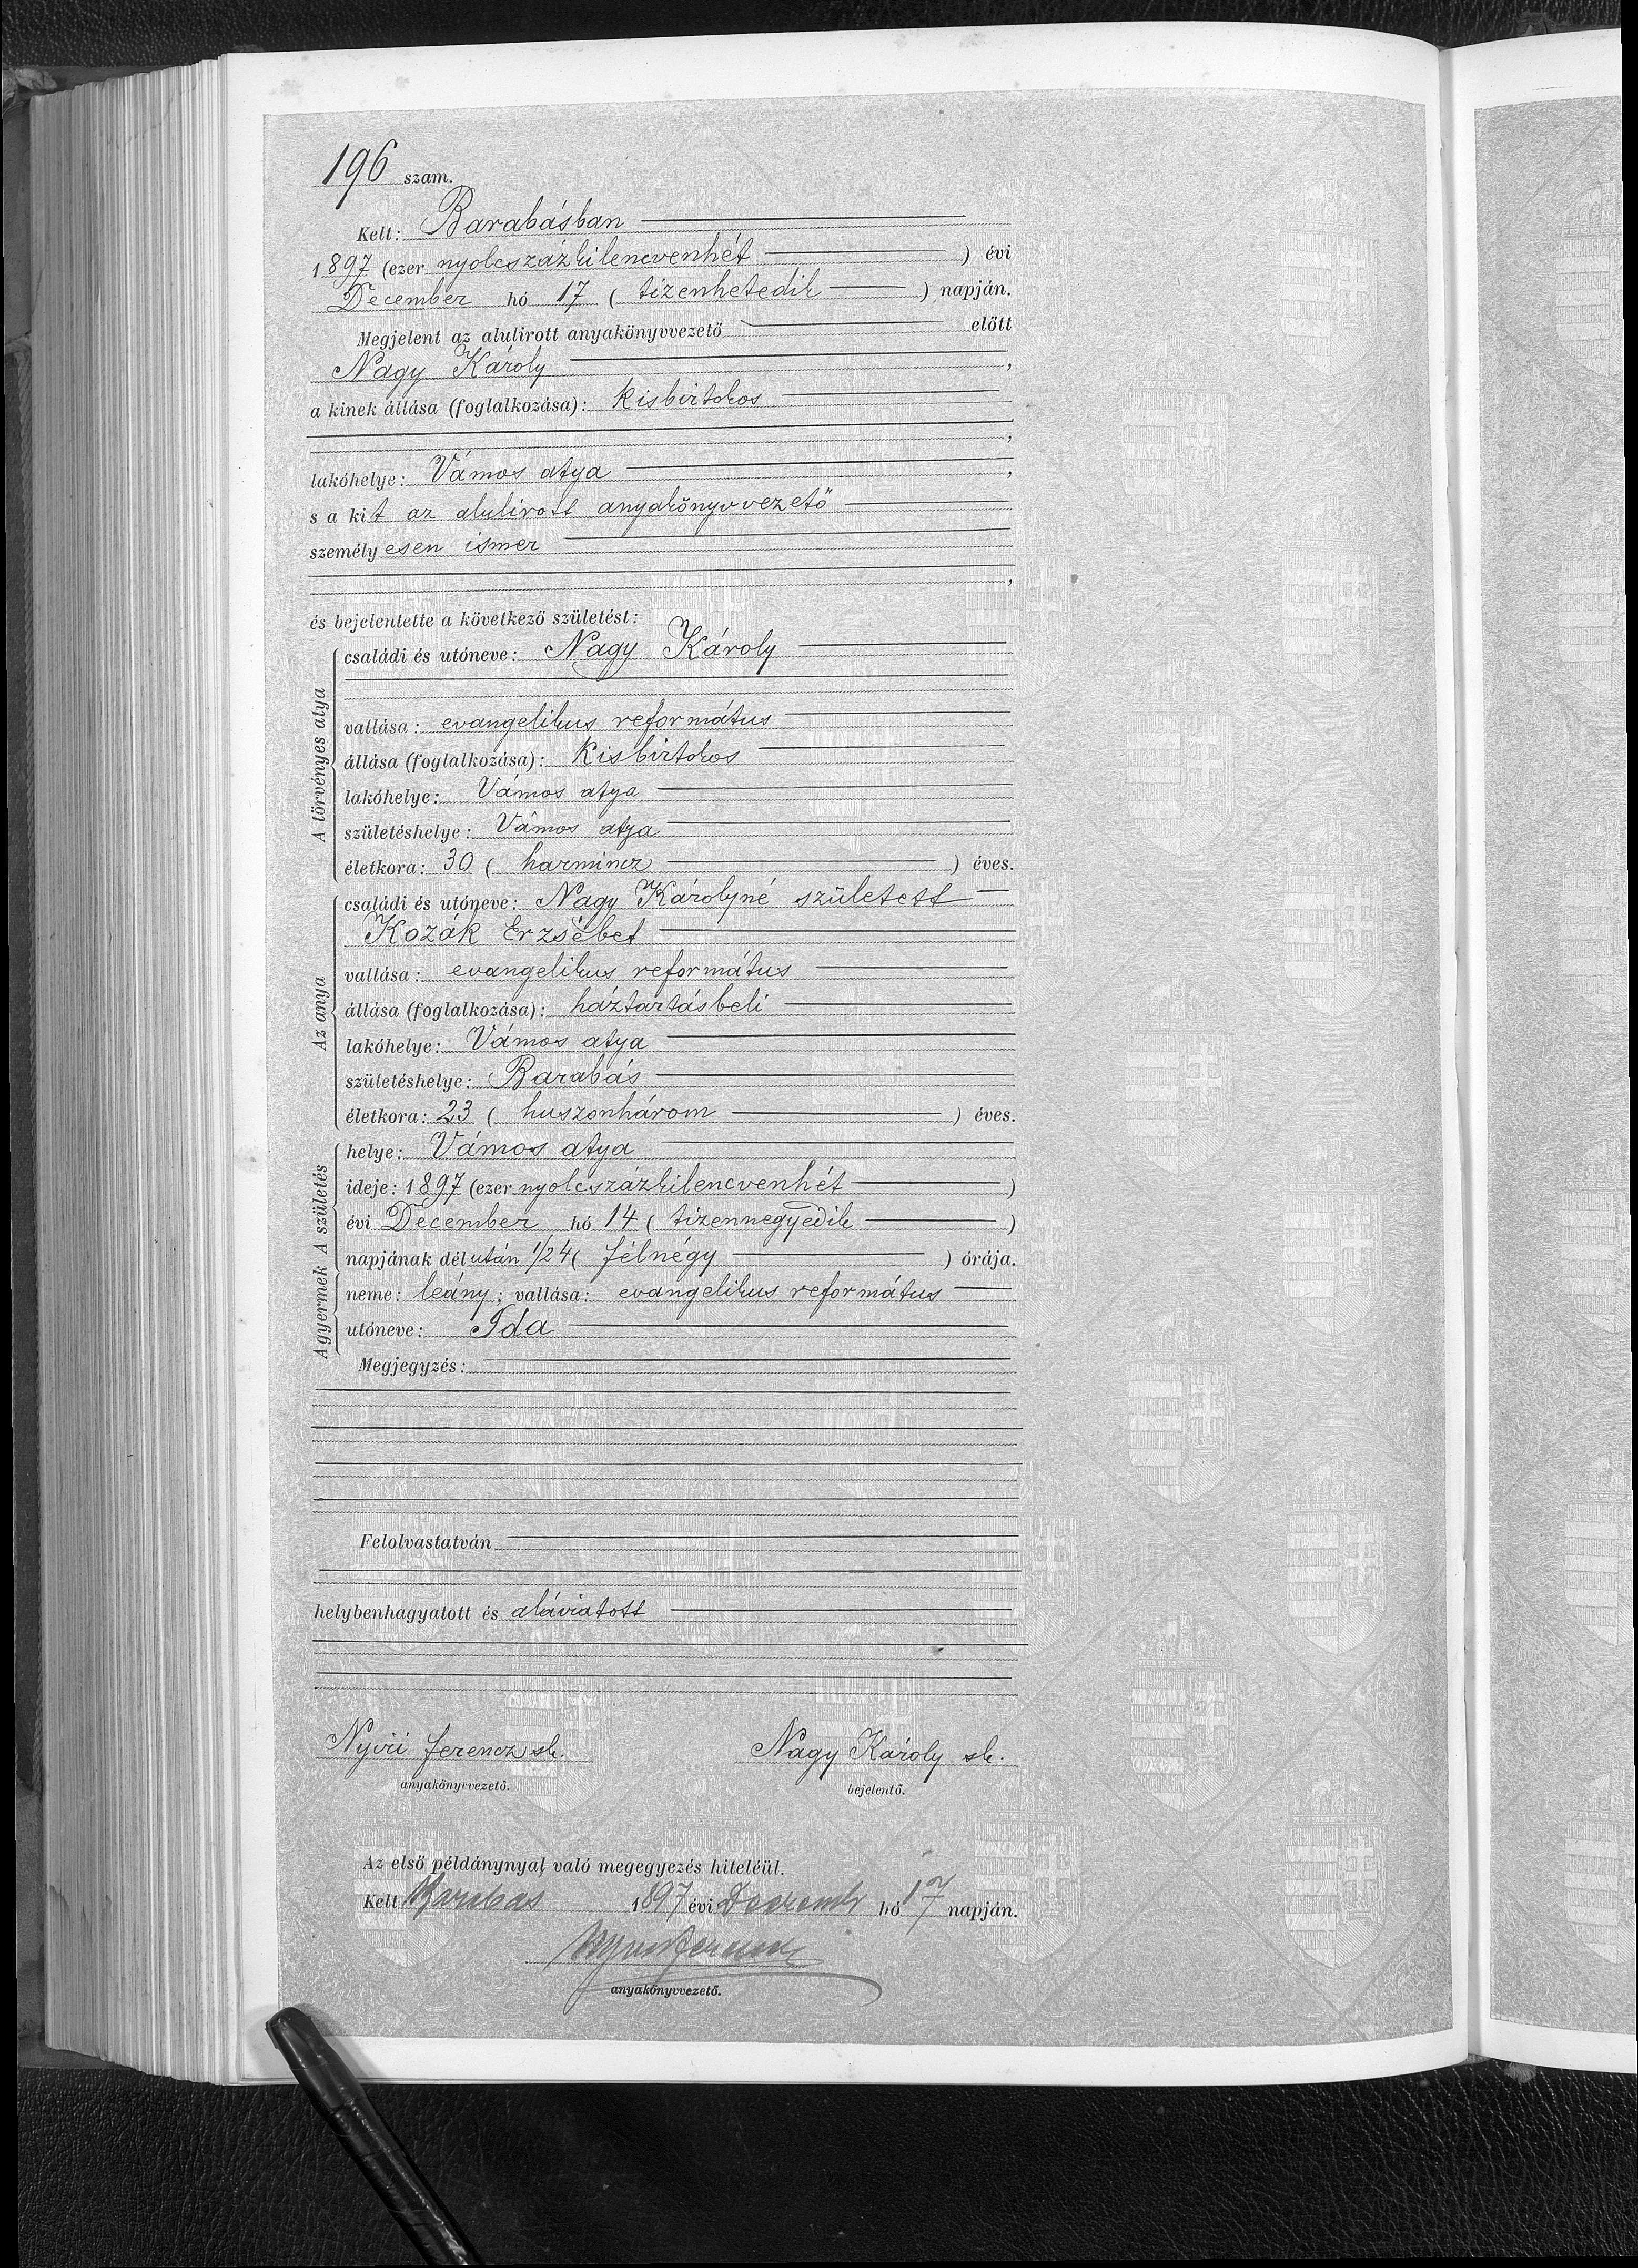 196 szam.
Kelt: Barabásban
1897 (ezer nyolcszázkilencvenhét ) évi
December hó 17 ( tizenhetedik ) napján.
Megjelent az alulirott anyakönyvvezető előtt
Nagy Károly ,
a kinek állása (foglalkozása): Kisbirtokos
,
lakóhelye: Vámos atya ,
s a kit az alulirott anyakönyvvezető
személyesen ismer
,
és bejelentette a következő születést:
A törvényes atya
családi és utóneve: Nagy Károly
vallása: evangelikus református
állása (foglalkozása): Kisbirtokos
lakóhelye: Vámos atya
születéshelye: Vámos atya
életkora: 30 ( harmincz ) éves.
Az anya
családi és utóneve: Nagy Károlyné született
Kozák Erzsébet
vallása: evangelikus református
állása (foglalkozása): háztartásbeli
lakóhelye: Vámos atya
születéshelye: Barabás
életkora: 23 ( huszonhárom ) éves.
A születés
helye: Vámos atya
ideje: 1897 (ezer nyolcszázkilencvenhét )
évi December hó 14 ( tizennegyedik )
napjának délután 1/2 4 ( félnégy ) órája.
A gyermek
neme: leány; vallása: evangelikus református
utóneve: Ida
Megjegyzés:
Felolvastatván
helybenhagyatott és aláiratott
Nyiri Ferencz sk. Nagy Károly sk.
anyakönyvvezető. bejelentő.
Az első példánynyal való megegyezés hiteléül.
Kelt Barabas 1897 évi Decemb hó 17 napján.
Nyiri Ferencz
anyakönyvvezető.